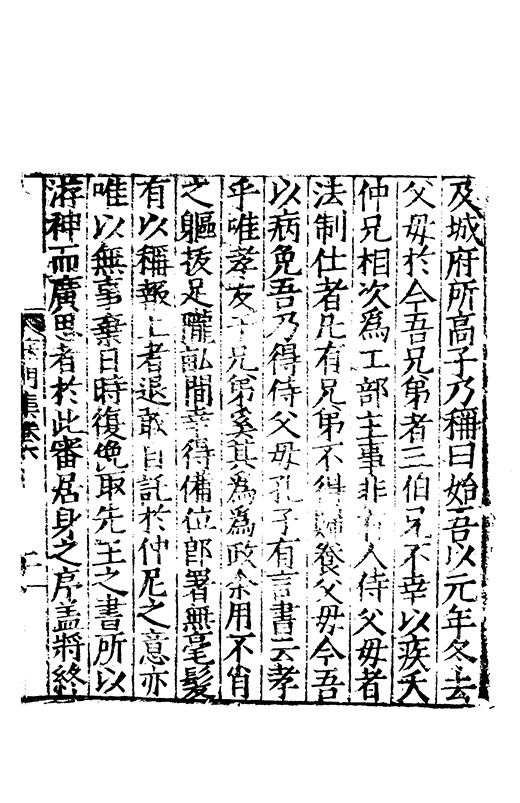 及城府所高子乃稱曰始吾以元年冬去
父母於今吾兄弟者三伯兄不幸以疾夭
仲兄相次為工部主事非有人侍父母者
法制仕者凡有兄弟不得歸養父母今吾
以病免吾乃得侍父母孔子有言書云孝
乎唯孝友于兄弟奚其為為政余用不肖
之軀抜足隴畝間幸得備位郎署無毫髮
有以稱報上者退敢自託於仲尼之意亦
唯以無事棄日時復俛取先王之書所以
游神而廣思者於此審居身之序盖將終
集卷六